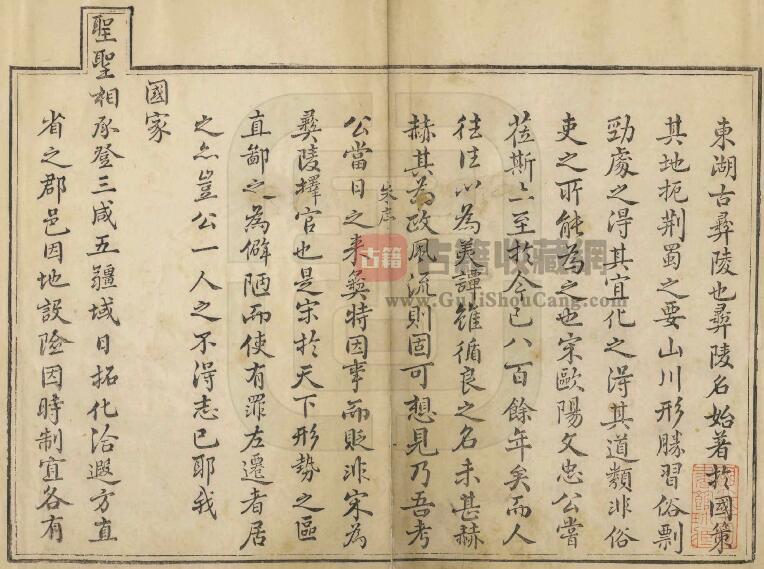 東湖古彞陵也彞陵名始著於國策
其地扼荆蜀之要山川形勝習俗剽
勁處之得其宜化之得其道類非俗
吏之所能為之也宋歐陽文忠公嘗
莅斯土至於今已八百餘年矣而人
徃徃以為美譚雖循良之名未甚赫
赫其為政風流則固可想見乃吾考
朱序
公當日之来彞特因事而貶非宋為
彞陵擇官也是宋於天下形勢之區
直鄙之為僻陋而使有罪左遷者居
之亦豈公一人之不得志已耶我
國家
聖聖相承登三咸五疆域日拓化洽遐方直
省之郡邑因地設險因時制宜各有
古籍收藏網
www.GuJiShouCang.com